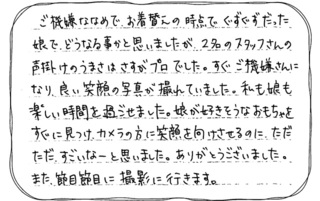 ご機嫌ななめで、お着替えの時点でぐずぐずだった
娘で、どうなる事かと思いましたが、2名のスタッフさんの
声掛けのうまさはさすがプロでした。すぐご機嫌さんに
なり、良い笑顔の写真が撮れていました。私も娘も
楽しい時間を過ごせました。娘が好きそうなおもちゃを
すぐに見つけ、カメラの方に笑顔を向けさせるのに、ただ
ただ、すごいなーと思いました。ありがとうございました。
また、節目節目に撮影に行きます。